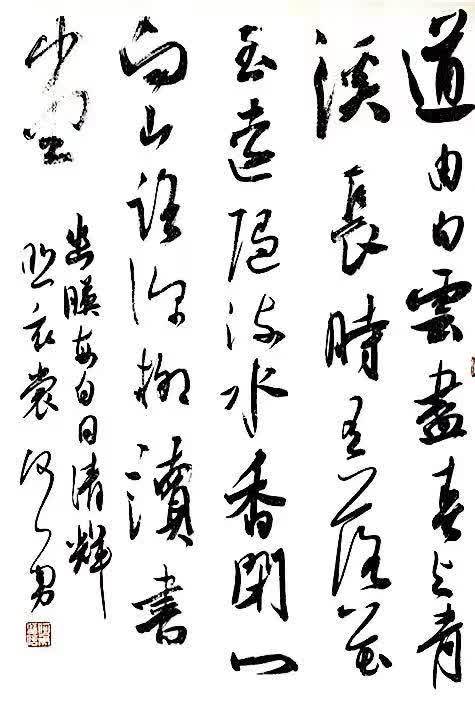 道由白雲盡春与青
溪長時有落花
至遠隨流水香閑門
向山路深柳讀書
堂
幽映每白日清輝
照衣裳